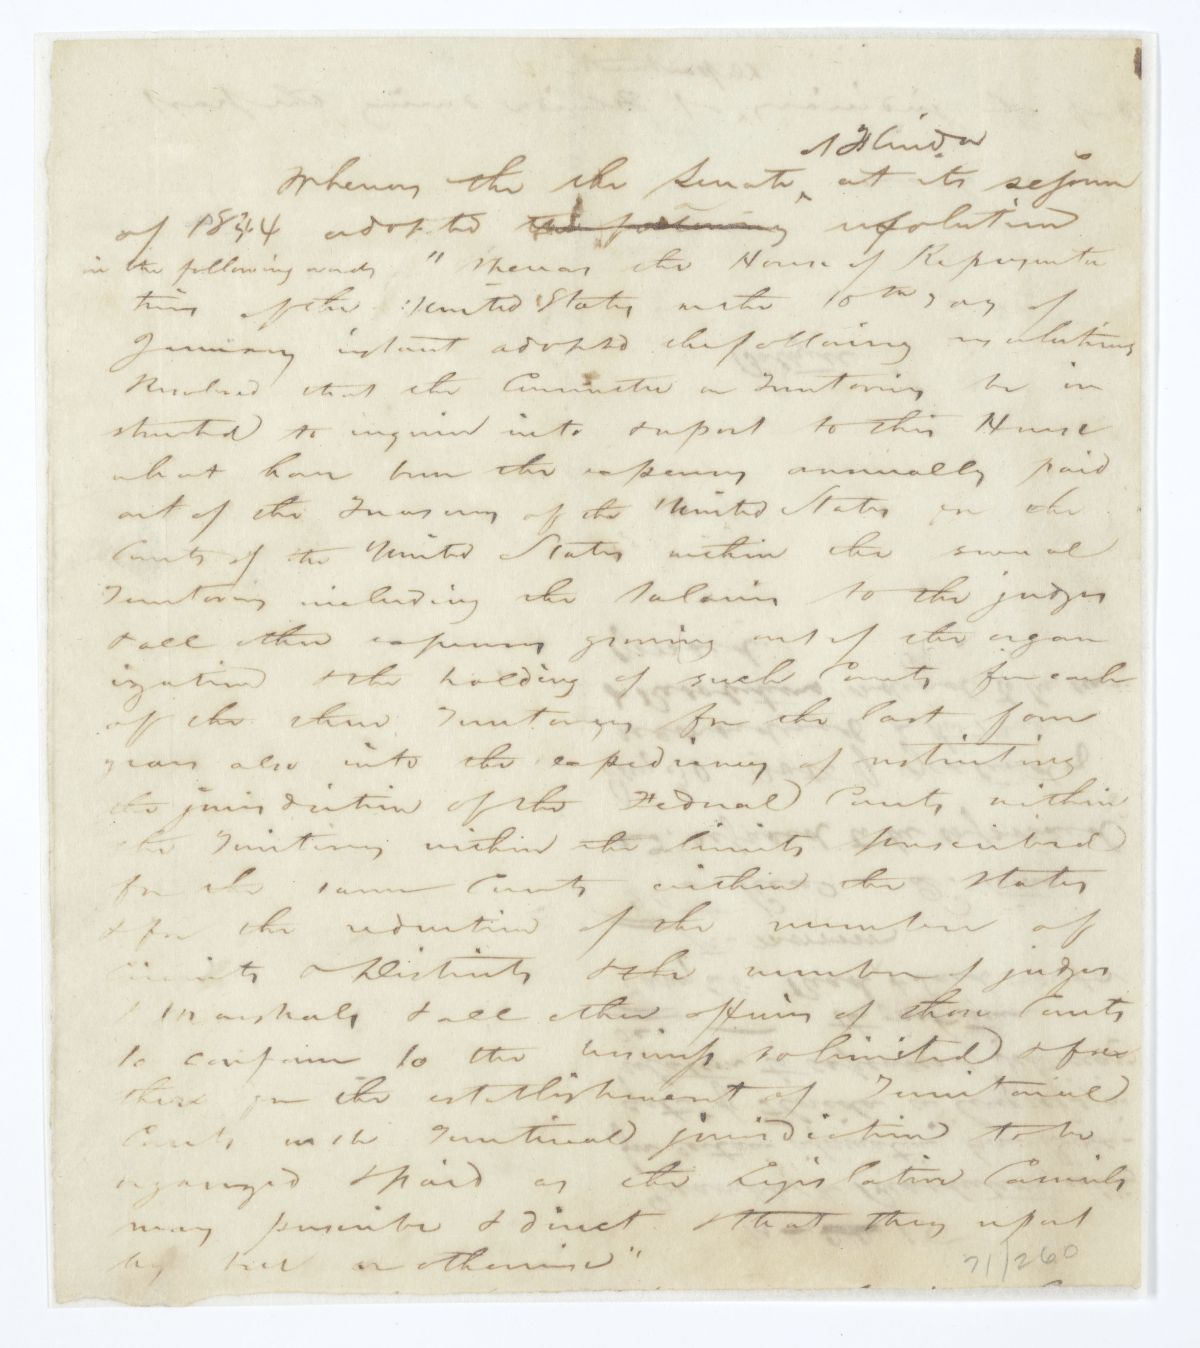 of Florida
Whereas the the Senate, at its session
of 1844 adopted the following resolution
in the following words " Whereas the House of Representa
tives of the United States on the 10th day of
January instant adopted the following resolutions
Resolved that the Committee on Territories be in
structed to inquire into & report to this House
what have been the expenses annually paid
out of the Treasury of the United States for the
Courts of the United States within the several
Territories including the Salaries to the judges
& all other expenses growing out of the organ
ization & the holding of such Courts for each
of the three Territories for the last four
years also into the expediency of restricting
the jurisdiction of the Federal Courts within
the Territories within the limits prescribed
for the same Courts within the States
& for the reduction of the number of
Circuits & Districts & the number of judges
& Marshals & all other officers of those Courts
to conform to the business so limited & fur
ther for the establishment of Territorial
Courts with Territorial jurisdiction to be
organized & paid as the Legislative Councils
may prescribe & direct & that they report
by bill or otherwise"
71/260